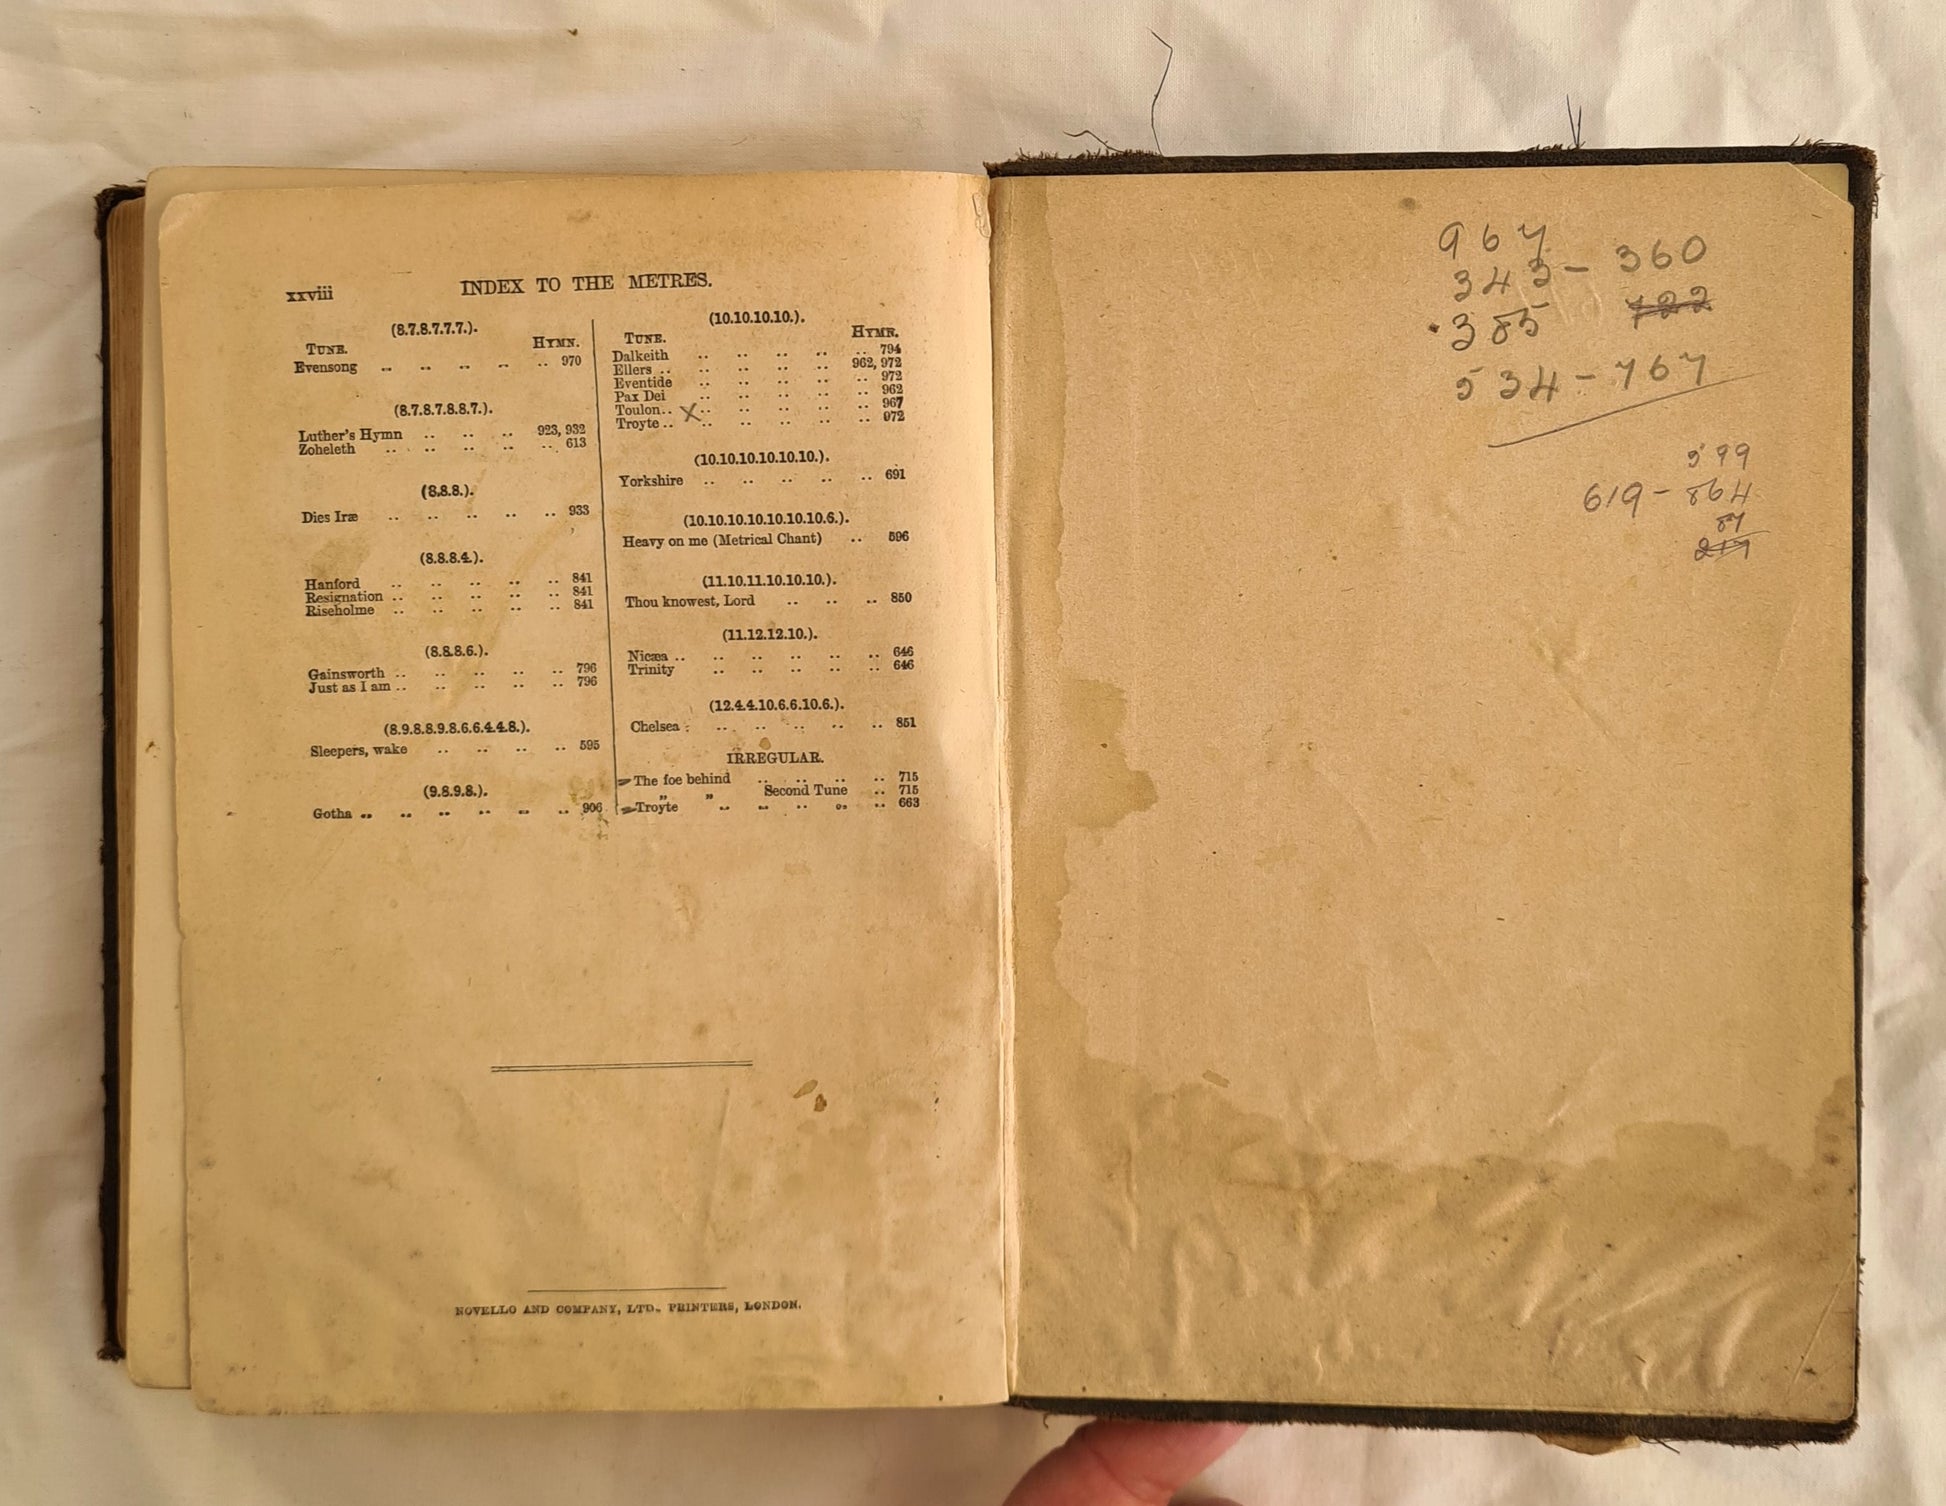 xxviii INDEX TO THE METRES.
(8.7.8.7.7.7.).
TUNE. HYMN.
Evensong .. .. .. .. .. 970
(8.7.8.7.8.8.7.).
Luther's Hymn .. .. .. 923, 932
Zoheleth .. .. .. .. .. 613
(8.8.8.).
Dies Iræ .. .. .. .. .. 933
(8.8.8.4.).
Hanford .. .. .. .. .. 841
Resignation .. .. .. .. .. 841
Riseholme .. .. .. .. .. 841
(8.8.8.6.).
Gainsworth .. .. .. .. .. 796
Just as I am .. .. .. .. .. 796
(8.9.8.8.9.8.6.6.4.4.8.).
Sleepers, wake .. .. .. .. 595
(9.8.9.8.).
Gotha .. .. .. .. .. .. 906
(10.10.10.10.).
TUNE. HYMN.
Dalkeith .. .. .. .. .. 794
Ellers .. .. .. .. .. 962, 972
Eventide .. .. .. .. .. 972
Pax Dei .. .. .. .. .. 962
Toulon.. X .. .. .. .. .. 967
Troyte .. .. .. .. .. .. 972
(10.10.10.10.10.10.).
Yorkshire .. .. .. .. .. 691
(10.10.10.10.10.10.10.6.).
Heavy on me (Metrical Chant) .. 596
(11.10.11.10.10.10.).
Thou knowest, Lord .. .. .. 850
(11.12.12.10.).
Nicæa .. .. .. .. .. .. 646
Trinity .. .. .. .. .. 646
(12.4.4.10.6.6.10.6.).
Chelsea .. .. .. .. .. 851
IRREGULAR.
The foe behind .. .. .. .. 715
„ „ Second Tune .. 715
Troyte .. .. .. .. .. 663
NOVELLO AND COMPANY, LTD., PRINTERS, LONDON.
967
343 - 360
385 722
534 - 767
599
619 - 864
87
217